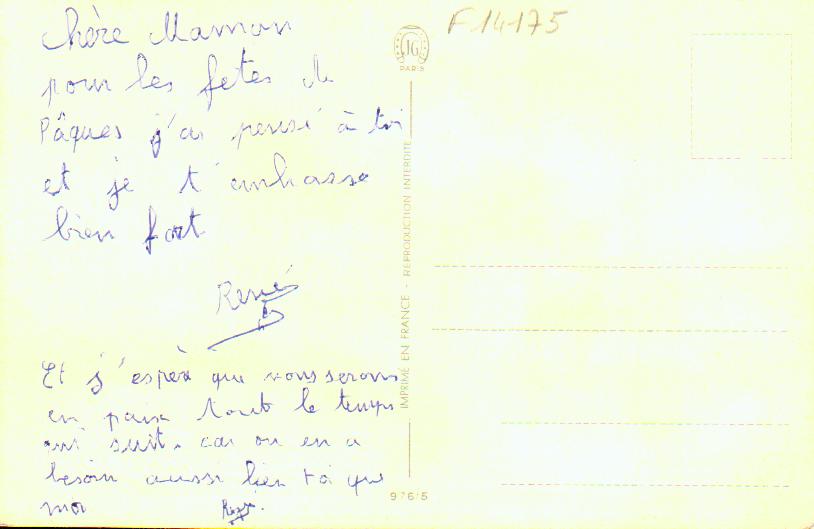 chère Maman
pour les fetes de
Pâques j'ai pensé à toi
et je t'embrasse
bien fort
René
Et j'espère que nous serons
en paix tout le temps
qui suit. car on en a
besoin aussi bien toi que
moi
F14175
JG
PARIS
IMPRIMÉ EN FRANCE - REPRODUCTION INTERDITE
976/5